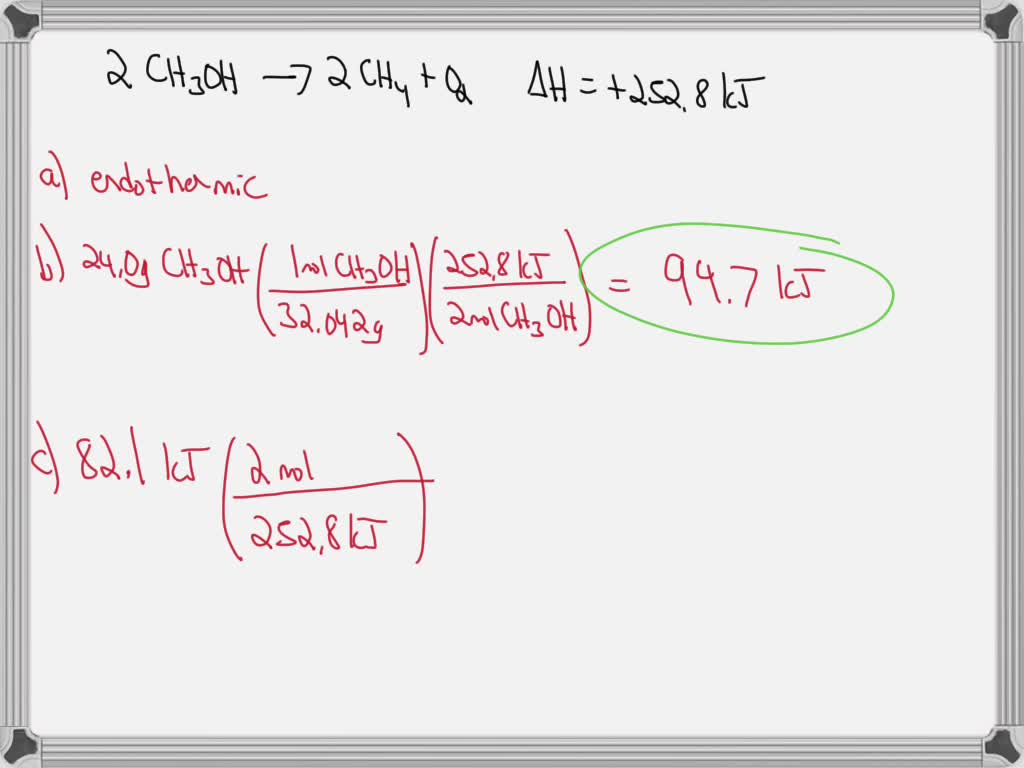 2 CH₃OH → 2 CH₄ + O₂ ΔH = +252.8 kJ
a) endothermic
b) 24.0g CH₃OH (1 mol CH₃OH / 32.042g) (252.8 kJ / 2 mol CH₃OH) = 94.7 kJ
c) 82.1 kJ (2 mol / 252.8 kJ)